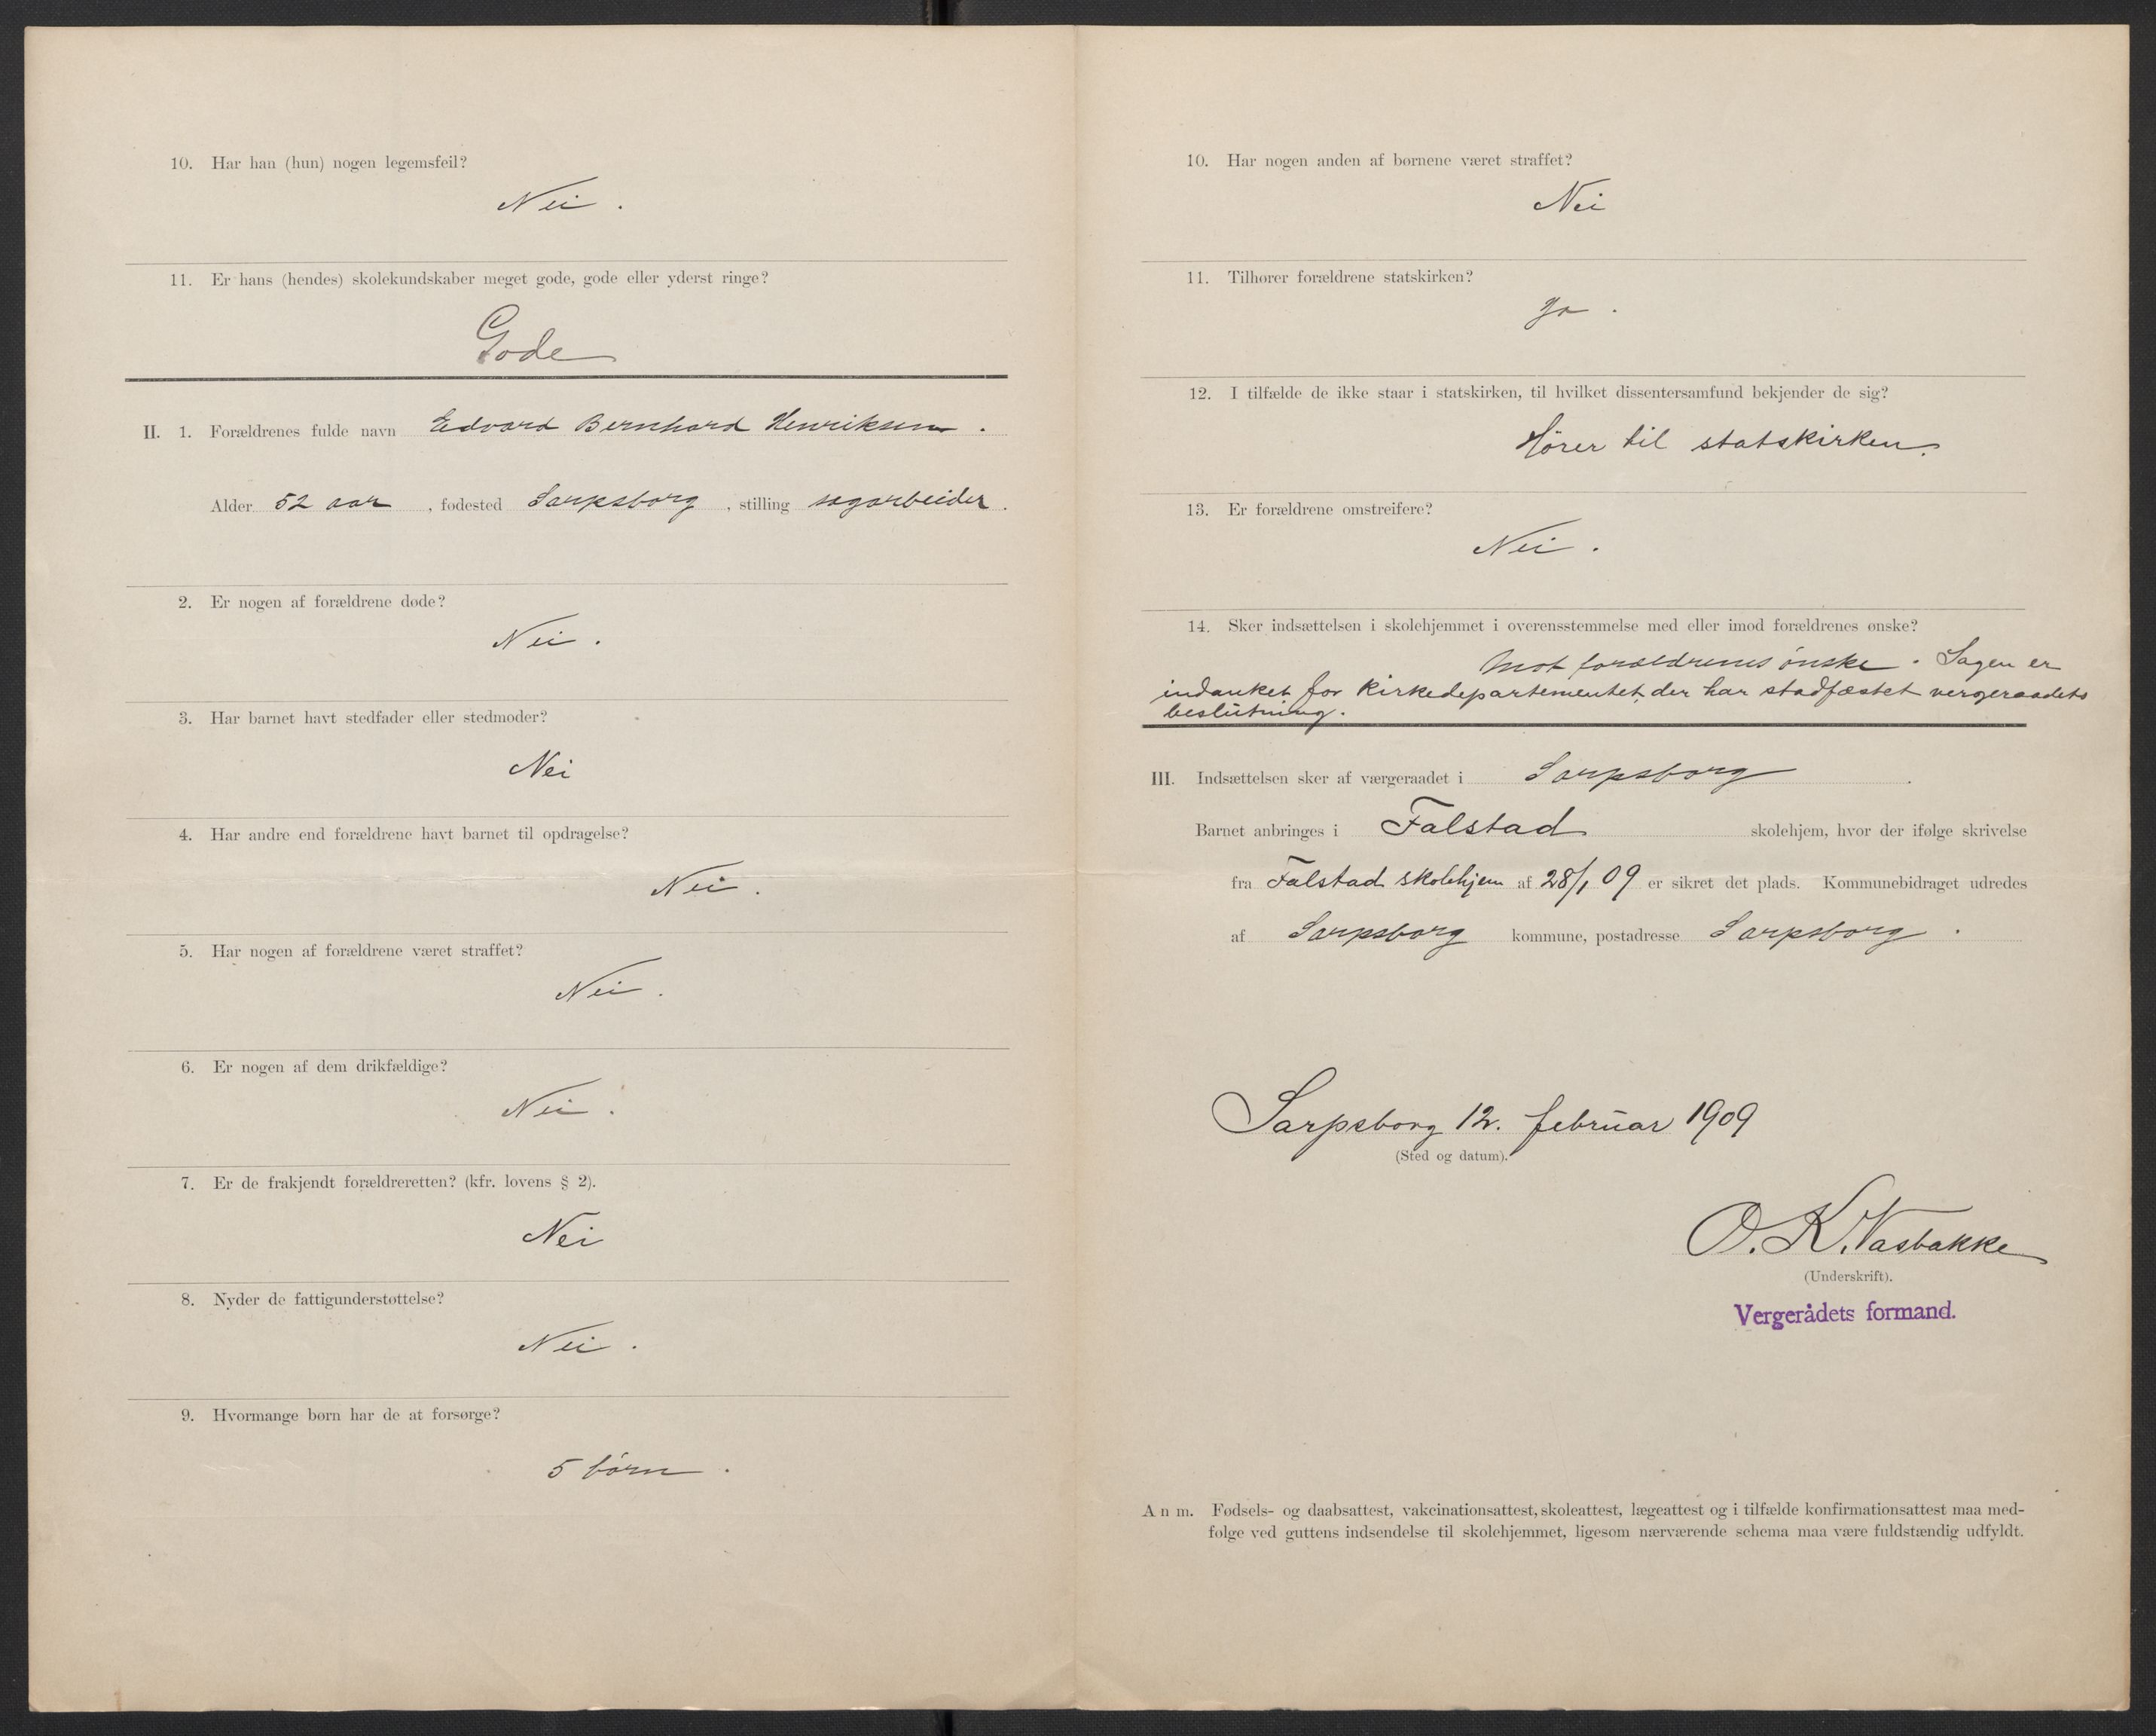 10. Har han (hun) nogen legemsfeil?
Nei.
11. Er hans (hendes) skolekundskaber meget gode, gode eller yderst ringe?
Gode
II. 1. Forældrenes fulde navn Edvard Bernhard Henriksen.
Alder 52 aar, fødested Sarpsborg, stilling sagarbeider.
2. Er nogen af forældrene døde?
Nei.
3. Har barnet havt stedfader eller stedmoder?
Nei
4. Har andre end forældrene havt barnet til opdragelse?
Nei.
5. Har nogen af forældrene været straffet?
Nei.
6. Er nogen af dem drikfældige?
Nei.
7. Er de frakjendt forældreretten? (kfr. lovens § 2).
Nei
8. Nyder de fattigunderstøttelse?
Nei.
9. Hvormange børn har de at forsørge?
5 børn.
10. Har nogen anden af børnene været straffet?
Nei
11. Tilhører forældrene statskirken?
Ja.
12. I tilfælde de ikke staar i statskirken, til hvilket dissentersamfund bekjender de sig?
Hører til statskirken.
13. Er forældrene omstreifere?
Nei.
14. Sker indsættelsen i skolehjemmet i overensstemmelse med eller imod forældrenes ønske?
Mot forældrenes ønske. Sagen er
indanket for Kirkedepartementet, der har stadfæstet vergeraadets
beslutning.
III. Indsættelsen sker af værgeraadet i Sarpsborg.
Barnet anbringes i Falstad skolehjem, hvor der ifølge skrivelse
fra Falstad skolehjem af 28/1 09 er sikret det plads. Kommunebidraget udredes
af Sarpsborg kommune, postadresse Sarpsborg.
Sarpsborg 12. februar 1909
(Sted og datum).
O. K. Vasbakke
(Underskrift).
Vergerådets formand.
Anm. Fødsels- og daabsattest, vakcinationsattest, skoleattest, lægeattest og i tilfælde konfirmationsattest maa med-
følge ved guttens indsendelse til skolehjemmet, ligesom nærværende schema maa være fuldstændig udfyldt.